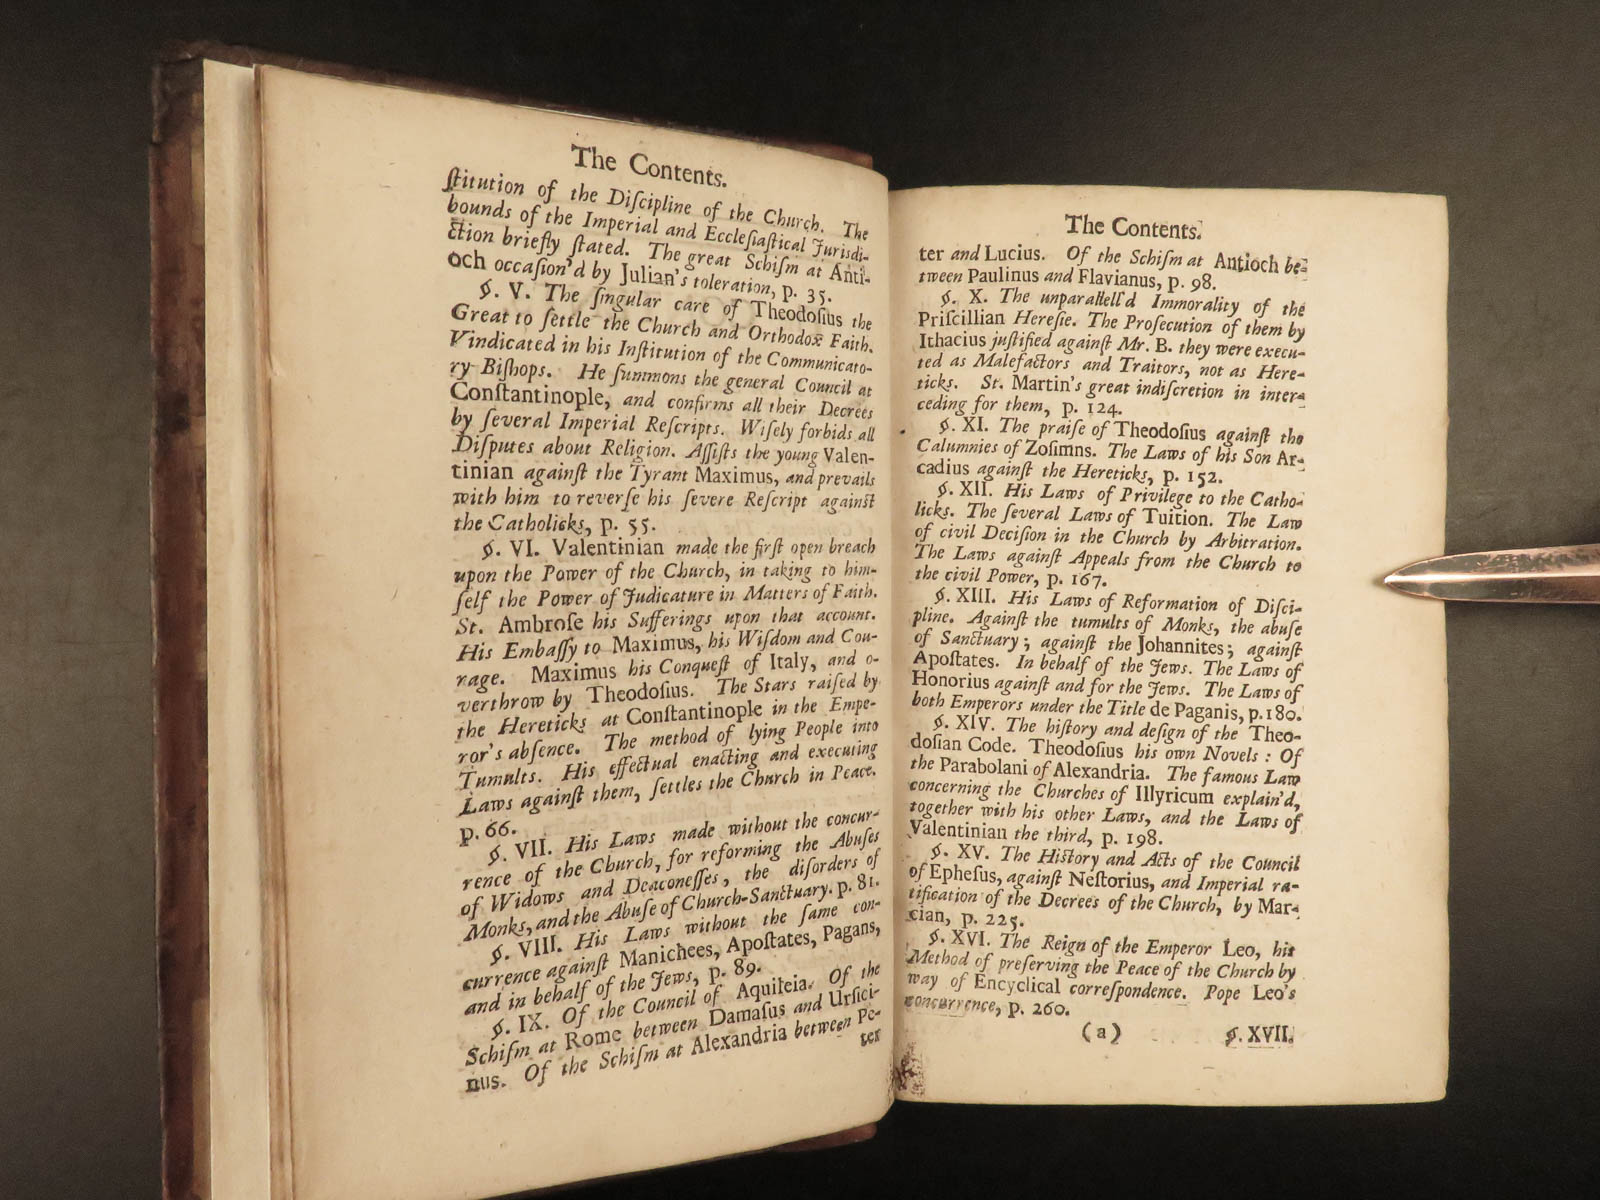 The Contents.
ſtitution of the Diſcipline of the Church. The
bounds of the Imperial and Eccleſiaſtical Juriſdi-
ction briefly ſtated. The great Schiſm at Anti-
och occaſion'd by Julian's toleration, p. 35.
§. V. The ſingular care of Theodoſius the
Great to ſettle the Church and Orthodox Faith.
Vindicated in his Inſtitution of the Communicato-
ry Biſhops. He ſummons the general Council at
Conſtantinople, and confirms all their Decrees
by ſeveral Imperial Reſcripts. Wiſely forbids all
Diſputes about Religion. Aſſiſts the young Valen-
tinian againſt the Tyrant Maximus, and prevails
with him to reverſe his ſevere Reſcript againſt
the Catholicks, p. 55.
§. VI. Valentinian made the firſt open breach
upon the Power of the Church, in taking to him-
ſelf the Power of Judicature in Matters of Faith.
St. Ambroſe his Sufferings upon that account.
His Embaſſy to Maximus, his Wiſdom and Cou-
rage. Maximus his Conqueſt of Italy, and o-
verthrow by Theodoſius. The Stars raiſed by
the Hereticks at Conſtantinople in the Empe-
ror's abſence. The method of lying People into
Tumults. His effectual enacting and executing
Laws againſt them, ſettles the Church in Peace.
p. 66.
§. VII. His Laws made without the concur-
rence of the Church, for reforming the Abuſes
of Widows and Deaconeſſes, the diſorders of
Monks, and the Abuſe of Church-Sanctuary. p. 81.
§. VIII. His Laws without the ſame con-
currence againſt Manichees, Apoſtates, Pagans,
and in behalf of the Jews, p. 89.
§. IX. Of the Council of Aquileia. Of the
Schiſm at Rome between Damaſus and Urſici-
nus. Of the Schiſm at Alexandria between Pe-
ter
The Contents.
ter and Lucius. Of the Schiſm at Antioch be-
tween Paulinus and Flavianus, p. 98.
§. X. The unparallell'd Immorality of the
Priſcillian Hereſie. The Proſecution of them by
Ithacius juſtified againſt Mr. B. they were execu-
ted as Malefactors and Traitors, not as Here-
ticks. St. Martin's great indiſcretion in inter-
ceding for them, p. 124.
§. XI. The praiſe of Theodoſius againſt the
Calumnies of Zoſimns. The Laws of his Son Ar-
cadius againſt the Hereticks, p. 152.
§. XII. His Laws of Privilege to the Catho-
licks. The ſeveral Laws of Tuition. The Law
of civil Deciſion in the Church by Arbitration.
The Laws againſt Appeals from the Church to
the civil Power, p. 167.
§. XIII. His Laws of Reformation of Diſci-
pline. Againſt the tumults of Monks, the abuſe
of Sanctuary; againſt the Johannites; againſt
Apoſtates. In behalf of the Jews. The Laws of
Honorius againſt and for the Jews. The Laws of
both Emperors under the Title de Paganis, p. 180.
§. XIV. The hiſtory and deſign of the Theo-
doſian Code. Theodoſius his own Novels: Of
the Parabolani of Alexandria. The famous Law
concerning the Churches of Illyricum explain'd,
together with his other Laws, and the Laws of
Valentinian the third, p. 198.
§. XV. The Hiſtory and Acts of the Council
of Epheſus, againſt Neſtorius, and Imperial ra-
tification of the Decrees of the Church, by Mar-
cian, p. 225.
§. XVI. The Reign of the Emperor Leo, his
Method of preſerving the Peace of the Church by
way of Encyclical correſpondence. Pope Leo's
concurrence, p. 260.
(a) §. XVII.